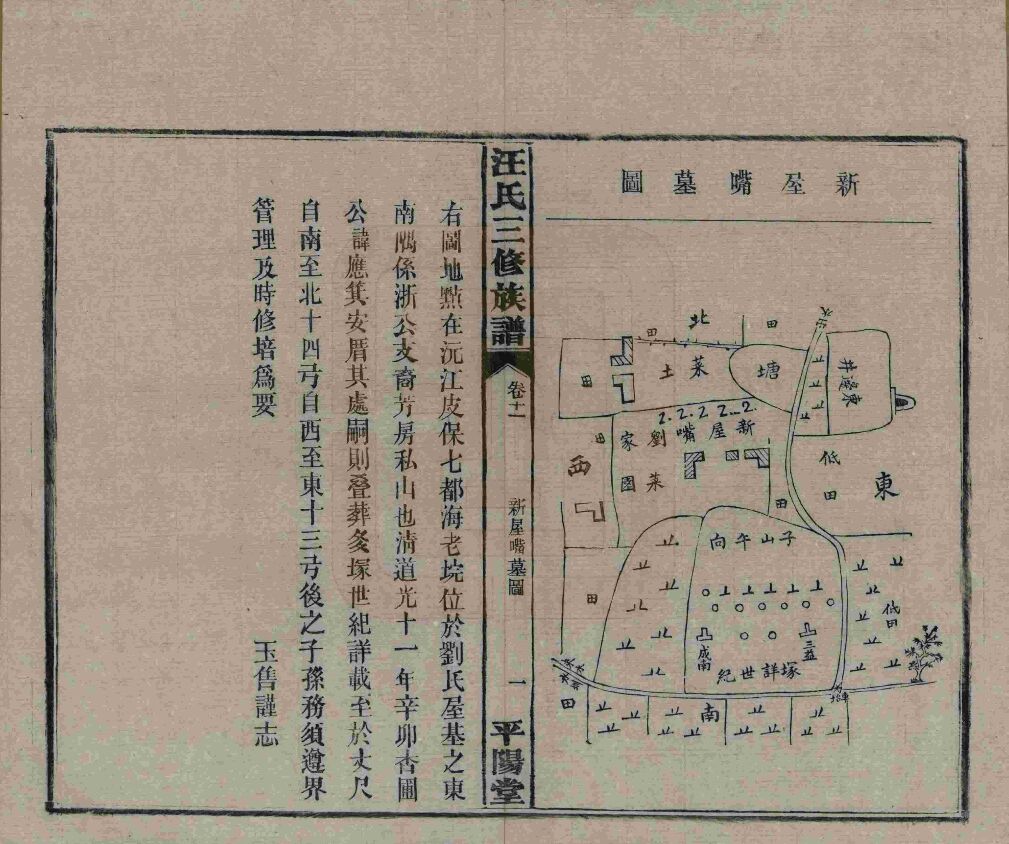 新屋嘴墓圖
北
田
田
大路
井邊東
塘
菜土
田
新屋嘴
劉家菜園
田
西
低田
東
田
子山午向
田
低田
三益
成南
塚詳世紀
田
南
汪氏三修族譜
卷十一
新屋嘴墓圖
一
平陽堂
右圖地㸃在沅江皮保七都海老垸位於劉氏屋基之東
南隅係浙公支裔芳房私山也清道光十一年辛卯杏圃
公諱應箕安厝其處嗣則叠葬多塚世紀詳載至於丈尺
自南至北十四弓自西至東十三弓後之子孫務須遵界
管理及時修培爲要
玉售謹志